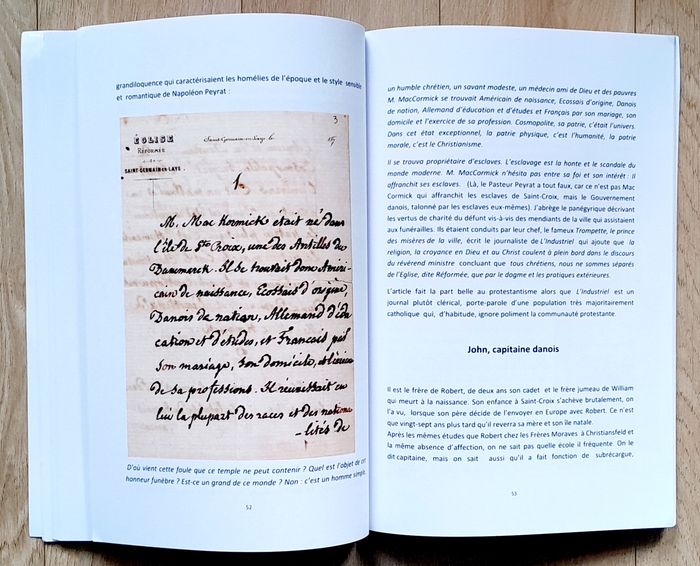 grandiloquence qui caractérisaient les homélies de l'époque et le style sensible
et romantique de Napoléon Peyrat :
3
ÉGLISE
RÉFORMÉE
DE
SAINT-GERMAIN-EN-LAYE
Saint-Germain-en-Laye le 187
1.
M. Mac Kormick était né dans
l'île de Ste Croix, une des Antilles du
Dannmarck. Il se trouvait donc Améri-
cain de naissance, Ecossais d'origine,
Danois de nation, Allemand d'édu
cation et d'études, et Français par
son mariage, son domicile, et l'exercice
de sa profession. Il réunissait en
lui la plupart des races et des nationa
-lités de
D'où vient cette foule que ce temple ne peut contenir ? Quel est l'objet de cet
honneur funèbre ? Est-ce un grand de ce monde ? Non : c'est un homme simple,
52
un humble chrétien, un savant modeste, un médecin ami de Dieu et des pauvres
M. MacCormick se trouvait Américain de naissance, Ecossais d'origine, Danois
de nation, Allemand d'éducation et d'études et Français par son mariage, son
domicile et l'exercice de sa profession. Cosmopolite, sa patrie, c'était l'univers.
Dans cet état exceptionnel, la patrie physique, c'est l'humanité, la patrie
morale, c'est le Christianisme.
Il se trouva propriétaire d'esclaves. L'esclavage est la honte et le scandale du
monde moderne. M. MacCormick n'hésita pas entre sa foi et son intérêt : Il
affranchit ses esclaves. (Là, le Pasteur Peyrat a tout faux, car ce n'est pas Mac
Cormick qui affranchit les esclaves de Saint-Croix, mais le Gouvernement
danois, talonné par les esclaves eux-mêmes). J'abrège le panégyrique décrivant
les vertus de charité du défunt vis-à-vis des mendiants de la ville qui assistaient
aux funérailles. Ils étaient conduits par leur chef, le fameux Trompette, le prince
des misères de la ville, écrit le journaliste de L'Industriel qui ajoute que la
religion, la croyance en Dieu et au Christ coulent à plein bord dans le discours
du révérend ministre concluant que tous chrétiens, nous ne sommes séparés
de l'Eglise, dite Réformée, que par le dogme et les pratiques extérieures.
L'article fait la part belle au protestantisme alors que L'Industriel est un
journal plutôt clérical, porte-parole d'une population très majoritairement
catholique qui, d'habitude, ignore poliment la communauté protestante.
John, capitaine danois
Il est le frère de Robert, de deux ans son cadet et le frère jumeau de William
qui meurt à la naissance. Son enfance à Saint-Croix s'achève brutalement, on
l'a vu, lorsque son père décide de l'envoyer en Europe avec Robert. Ce n'est
que vingt-sept ans plus tard qu'il reverra sa mère et son île natale.
Après les mêmes études que Robert chez les Frères Moraves à Christiansfeld et
la même absence d'affection, on ne sait pas quelle école il fréquente. On le
dit capitaine, mais on sait aussi qu'il a fait fonction de subrécargue,
53